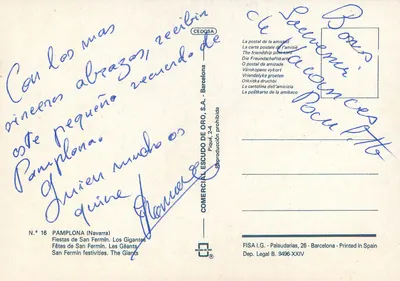 Con los mas
sinceros abrazos, recibir
este pequeño recuerdo de
Pamplona.
Quien mucho os
quiere
Bons
Souvenir
de vacances
CEDOSA
La postal de la amistad
La carte postale de l'amitié
Die Freundschaftskarte
The friendship post card
O postal da amizade
Vänskapens vykort
Vriendelijke groeten
La cartolina dell'amicizia
COMERCIAL ESCUDO DE ORO, S.A. - Barcelona
Reproducción prohibida
N.º 16 PAMPLONA (Navarra)
Fiestas de San Fermín. Los Gigantes
Fêtes de San Fermín. Les Géants
San Fermín festivities. The Giants
FISA I.G. - Palaudarias, 26 - Barcelona - Printed in Spain
Dep. Legal B. 9496-XXIV